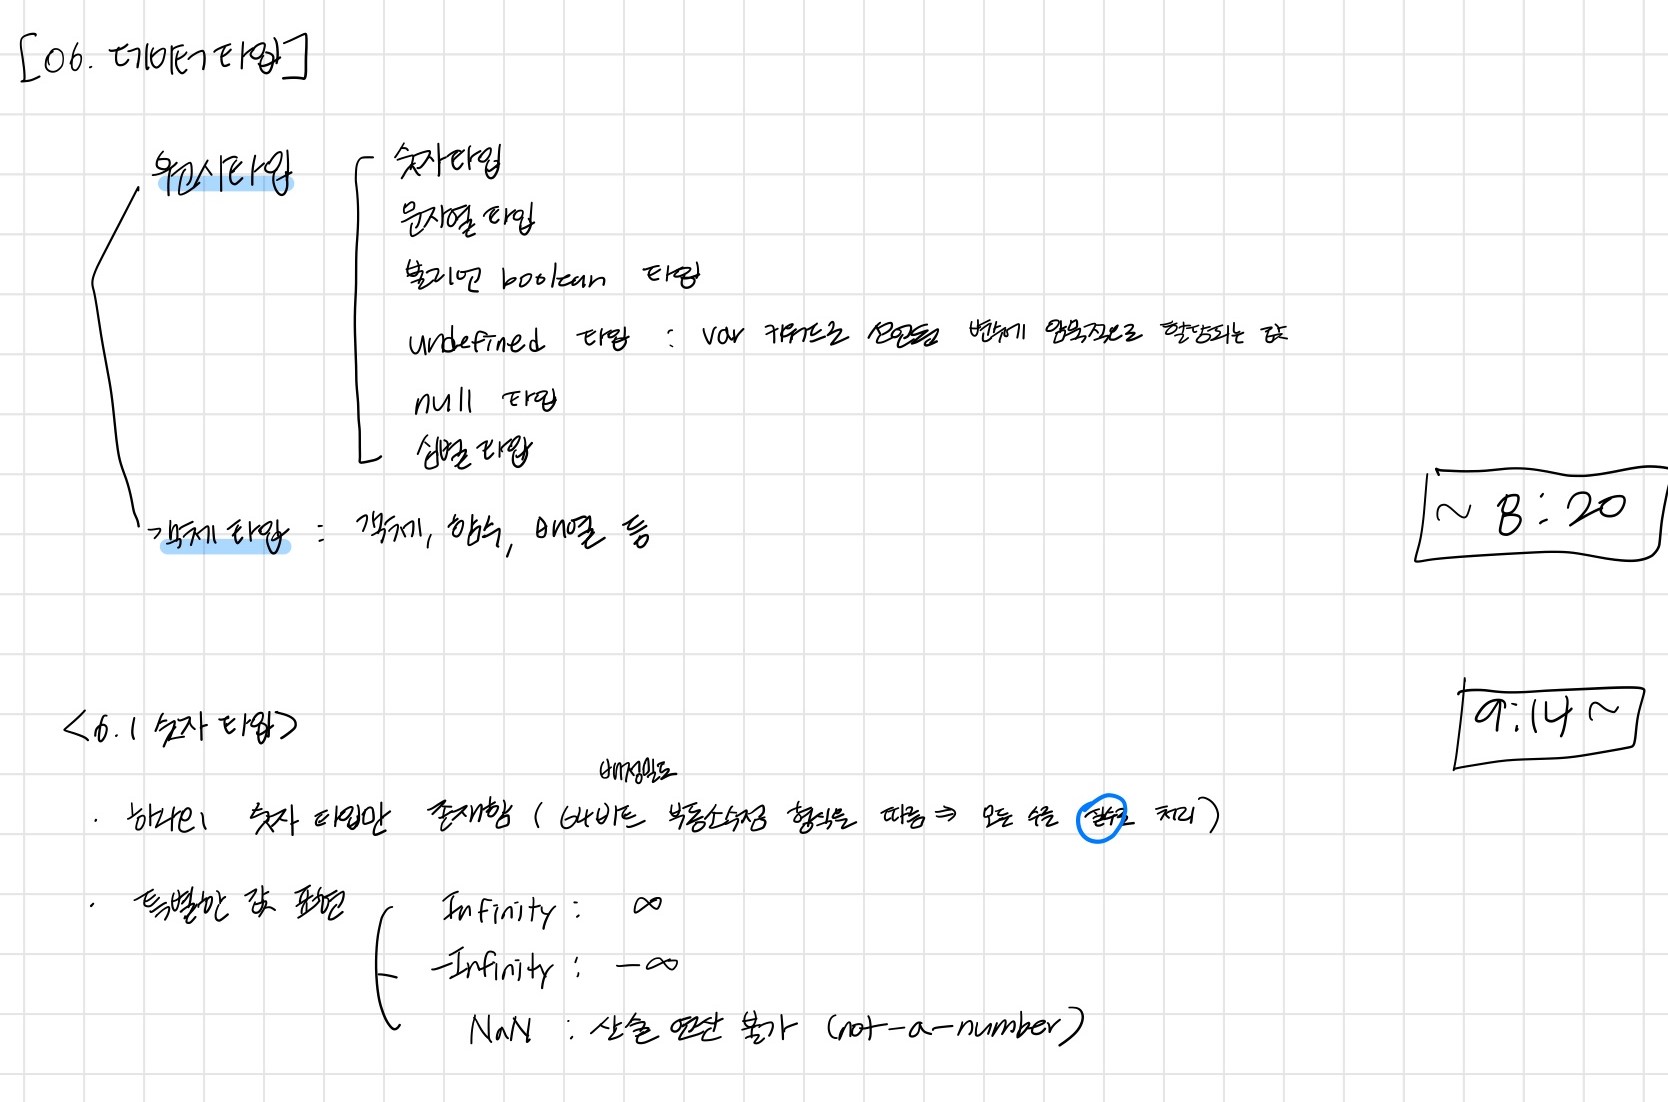 [06. 데이터 타입]
원시타입
숫자타입
문자열 타입
불리언 boolean 타입
undefined 타입 : var 키워드로 선언된 변수에 암묵적으로 할당되는 값
null 타입
심벌 타입
객체 타입 : 객체, 함수, 배열 등
~ 8:20
9:14 ~
<6.1 숫자 타입>
배정밀도
· 하나의 숫자 타입만 존재함 ( 64비트 부동소수점 형식을 따름 ⇒ 모든 수를 실수로 처리 )
· 특별한 값 표현
Infinity : ∞
-Infinity : -∞
NaN : 산술 연산 불가 (not-a-number)